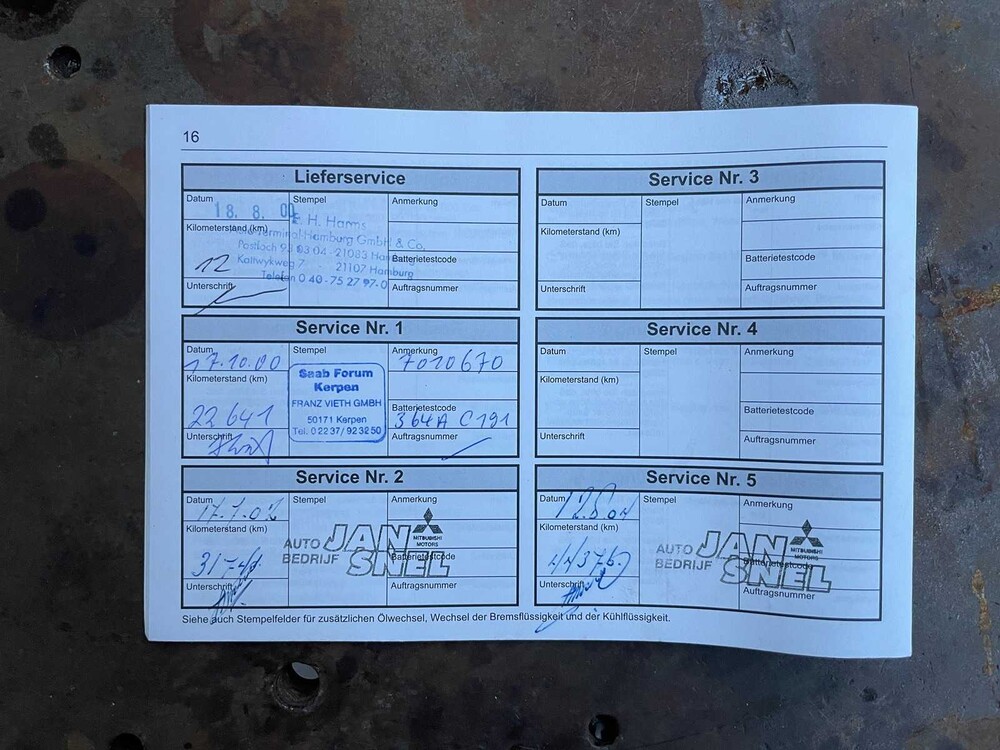 16
Lieferservice
Datum
18. 8. 00
Stempel
Anmerkung
H. Harms
Kilometerstand (km)
Terminal-Hamburg GmbH & Co.
Postfach 93 03 04 - 21083 Hamburg
Kattwykweg 7 21107 Hamburg
Telefon 0 40 - 75 27 97-0
12
Batterietestcode
Unterschrift
Auftragsnummer
Service Nr. 1
Datum
17.10.00
Stempel
Anmerkung
7010670
Kilometerstand (km)
22 641
Saab Forum
Kerpen
FRANZ VIETH GMBH
50171 Kerpen
Tel. 0 22 37 / 92 32 50
Batterietestcode
364A C191
Unterschrift
Auftragsnummer
Service Nr. 2
Datum
17.1.02
Stempel
Anmerkung
Kilometerstand (km)
AUTO JAN
BEDRIJF SNEL
MITSUBISHI
MOTORS
Batterietestcode
Unterschrift
Auftragsnummer
Service Nr. 3
Datum
Stempel
Anmerkung
Kilometerstand (km)
Batterietestcode
Unterschrift
Auftragsnummer
Service Nr. 4
Datum
Stempel
Anmerkung
Kilometerstand (km)
Batterietestcode
Unterschrift
Auftragsnummer
Service Nr. 5
Datum
Stempel
Anmerkung
Kilometerstand (km)
AUTO JAN
BEDRIJF SNEL
MITSUBISHI
MOTORS
Batterietestcode
Unterschrift
Auftragsnummer
Siehe auch Stempelfelder für zusätzlichen Ölwechsel, Wechsel der Bremsflüssigkeit und der Kühlflüssigkeit.